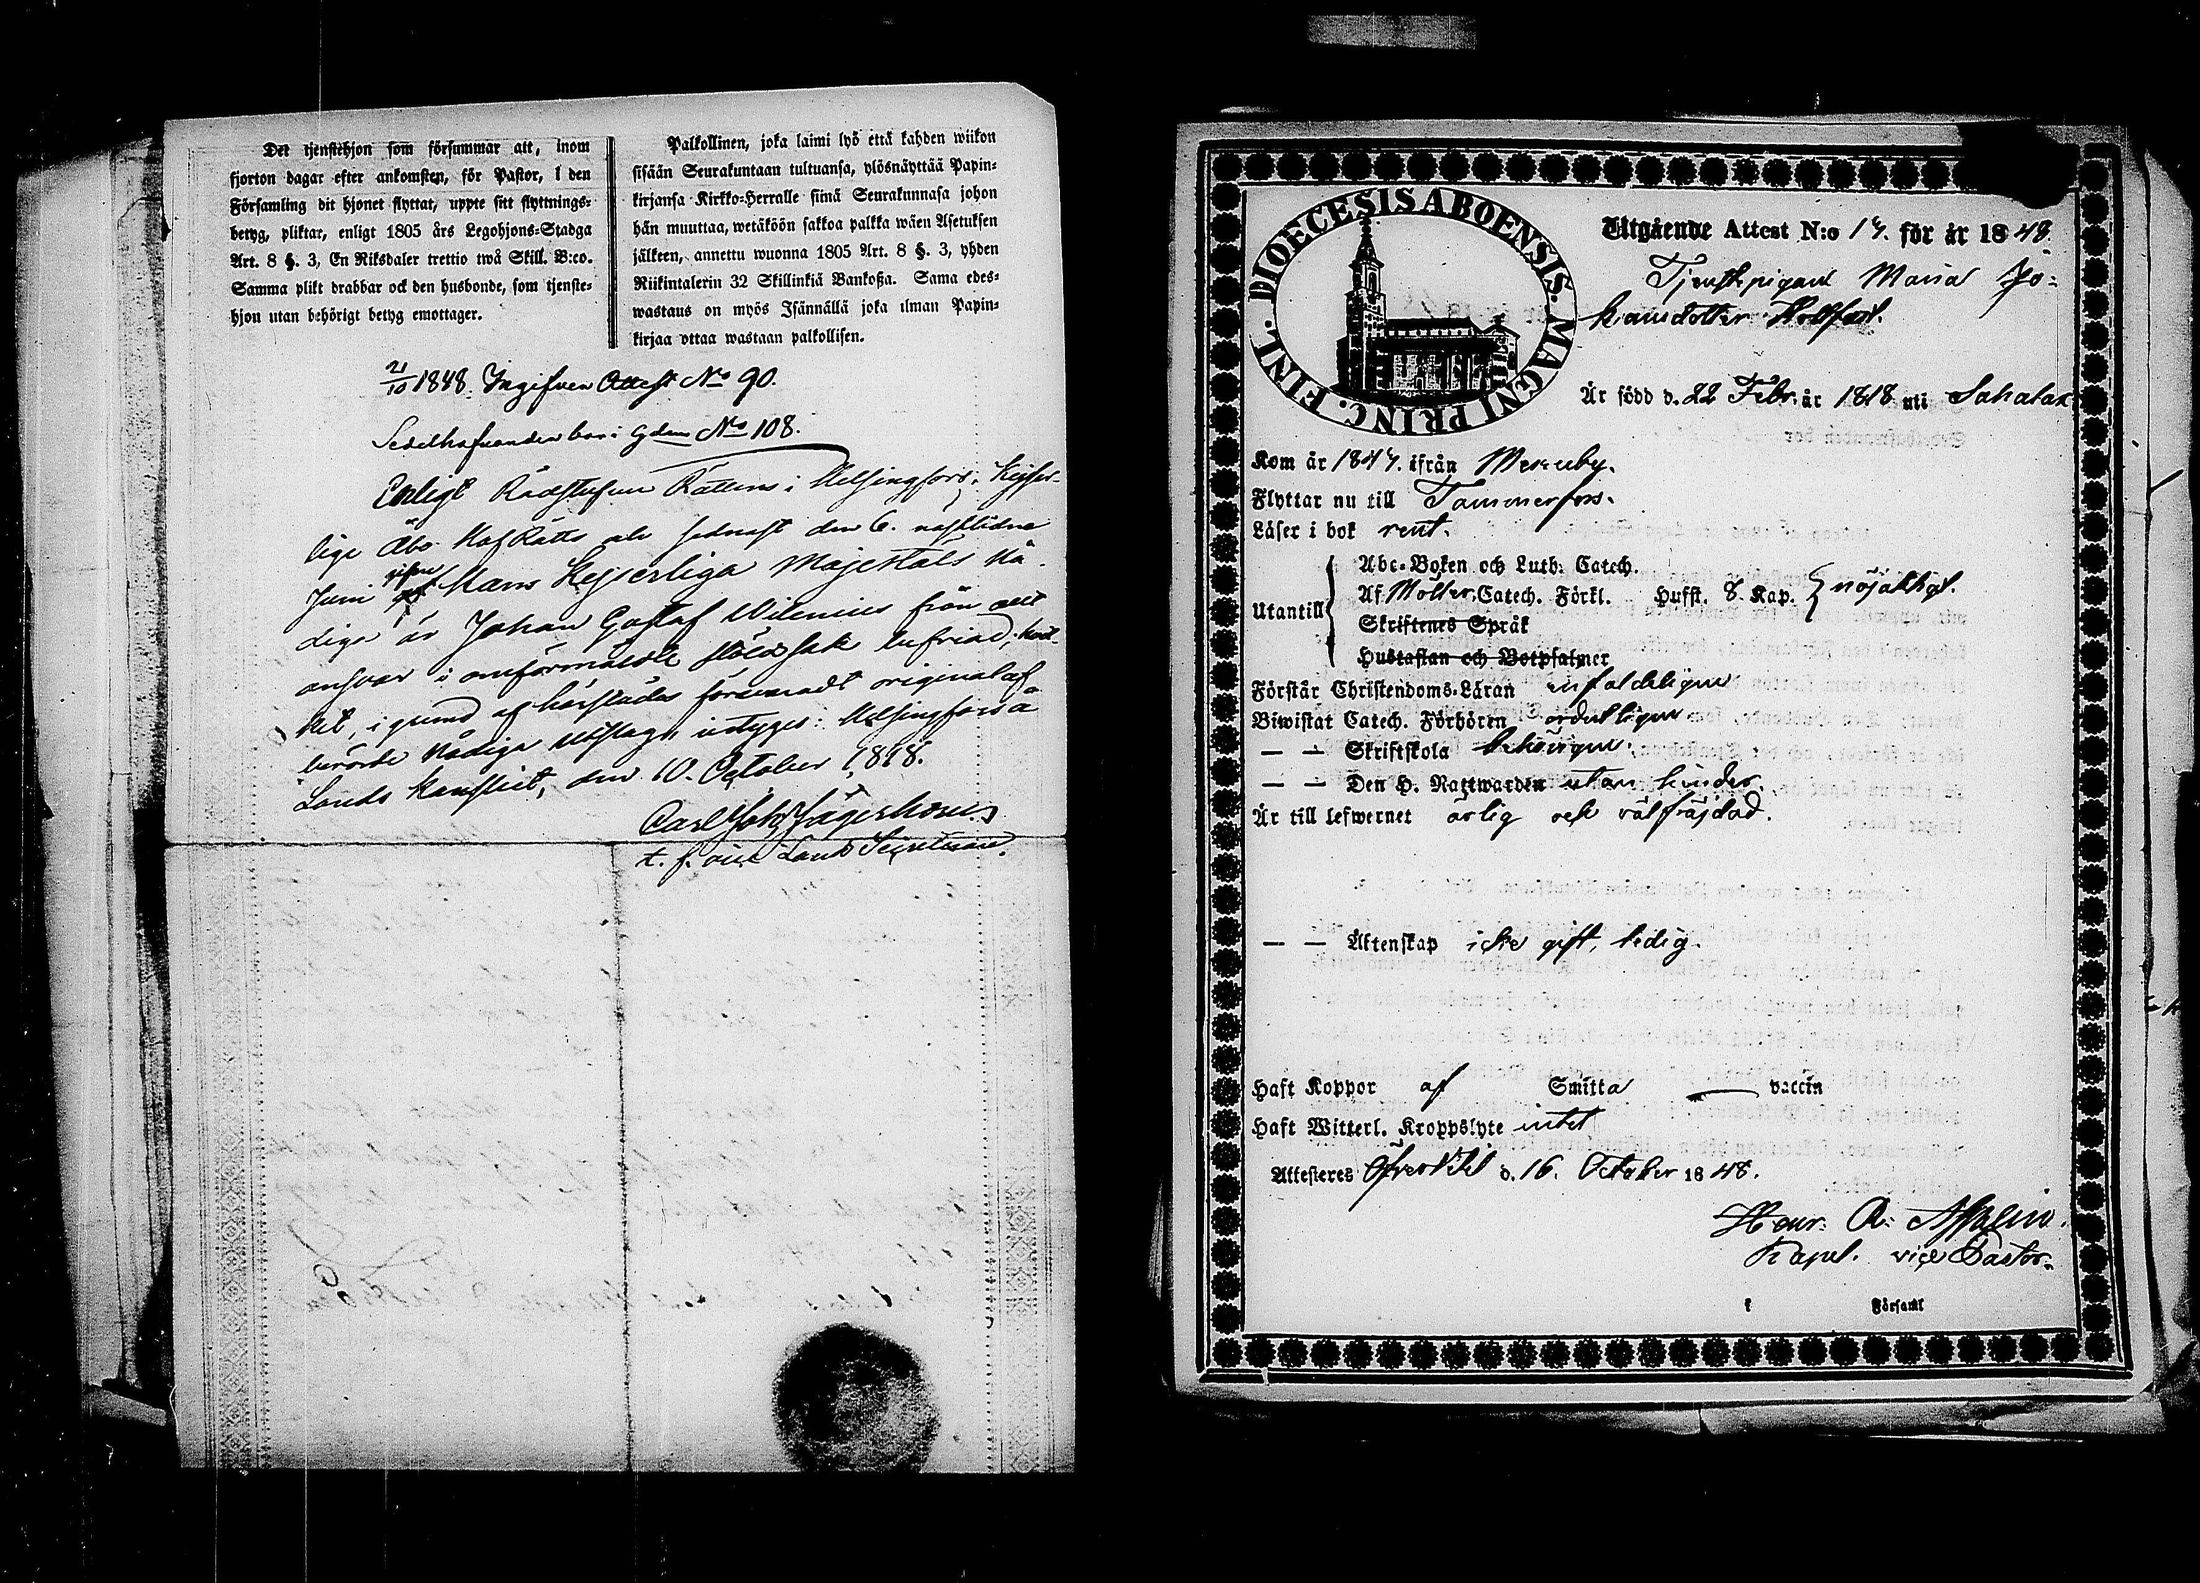 Det tjenstehjon som försummar att, inom
fjorton dagar efter ankomsten, för Pastor, i den
Församling dit hjonet flyttat, uppte sitt flyttnings-
betyg, pliktar, enligt 1805 års Legohjons-Stadga
Art. 8 §. 3, En Riksdaler trettio twå Skill. B:co.
Samma plikt drabbar ock den husbonde, som tjenste-
hjon utan behörigt betyg emottager.
Palkollinen, joka laimi lyö että kahden wiikon
sisään Seurakuntaan tultuansa, ylösnäyttää Papin-
kirjansa Kirkko-Herralle siinä Seurakunnasa johon
hän muuttaa, wetäköön sakkoa palkka wäen Asetuksen
jälkeen, annettu wuonna 1805 Art. 8 §. 3, yhden
Riikintalerin 32 Skillinkiä Bankoßa. Sama edes-
wastaus on myös Isännällä joka ilman Papin-
kirjaa ottaa wastaan palkollisen.
21/10 1848. Ingifven Attest No 90.
Sedelhafvanden bor i gden No 108.
Enligt Rådstufvu Rättens i Helsingfors, Kejser-
lige Åbo HofRätts och sednast den 6. nästlidne
Juni gifne Hans Kejserliga Majestäts Nå-
dige är Johan Gustaf Wilenius från allt
ansvar i omförmäldte stöldsak befriad; hvil-
ket, i grund af härstädes förvaradt original af
berörde Nådiga Utslag, intygas: Helsingfors å
Lands Kansliet, den 10. October 1848.
Carl Joh Jägerhorn
t. f. vice Lands Secreterare.
DIOECESIS ABOENSIS. MAGNI PRINC. FINL.
Utgående Attest N:o 17. för år 1848.
Tjenstepigan Maria Jo-
hansdotter Hollfast.
Är född d. 22 Febr. år 1818 uti Sahalax
Kom år 1847. ifrån Messuby.
Flyttar nu till Tammerfors.
Läser i bok rent.
Utantill
Abc-Boken och Luth: Catech.
Af Möller, Catech. Förkl. Hufst. 8. Kap. nöjaktigt.
Skriftenes Språk
Hustaflan och Botpsalmer
Förstår Christendoms-Läran enfaldeligen
Biwistat Catech. Förhören ordentligen
— — Skriftskola behörigen.
— — Den H. Nattwarden utan hinder.
Är till lefwernet ärlig och välfräjdad.
— — Äktenskap icke gift, ledig.
Haft Koppor af Smitta — vaccin
Haft Witterl. Kroppslyte intet
Attesteres Öfver Wesi d. 16. October 1848.
Henr. A.
Kapel. vice Pastor.
i Församl